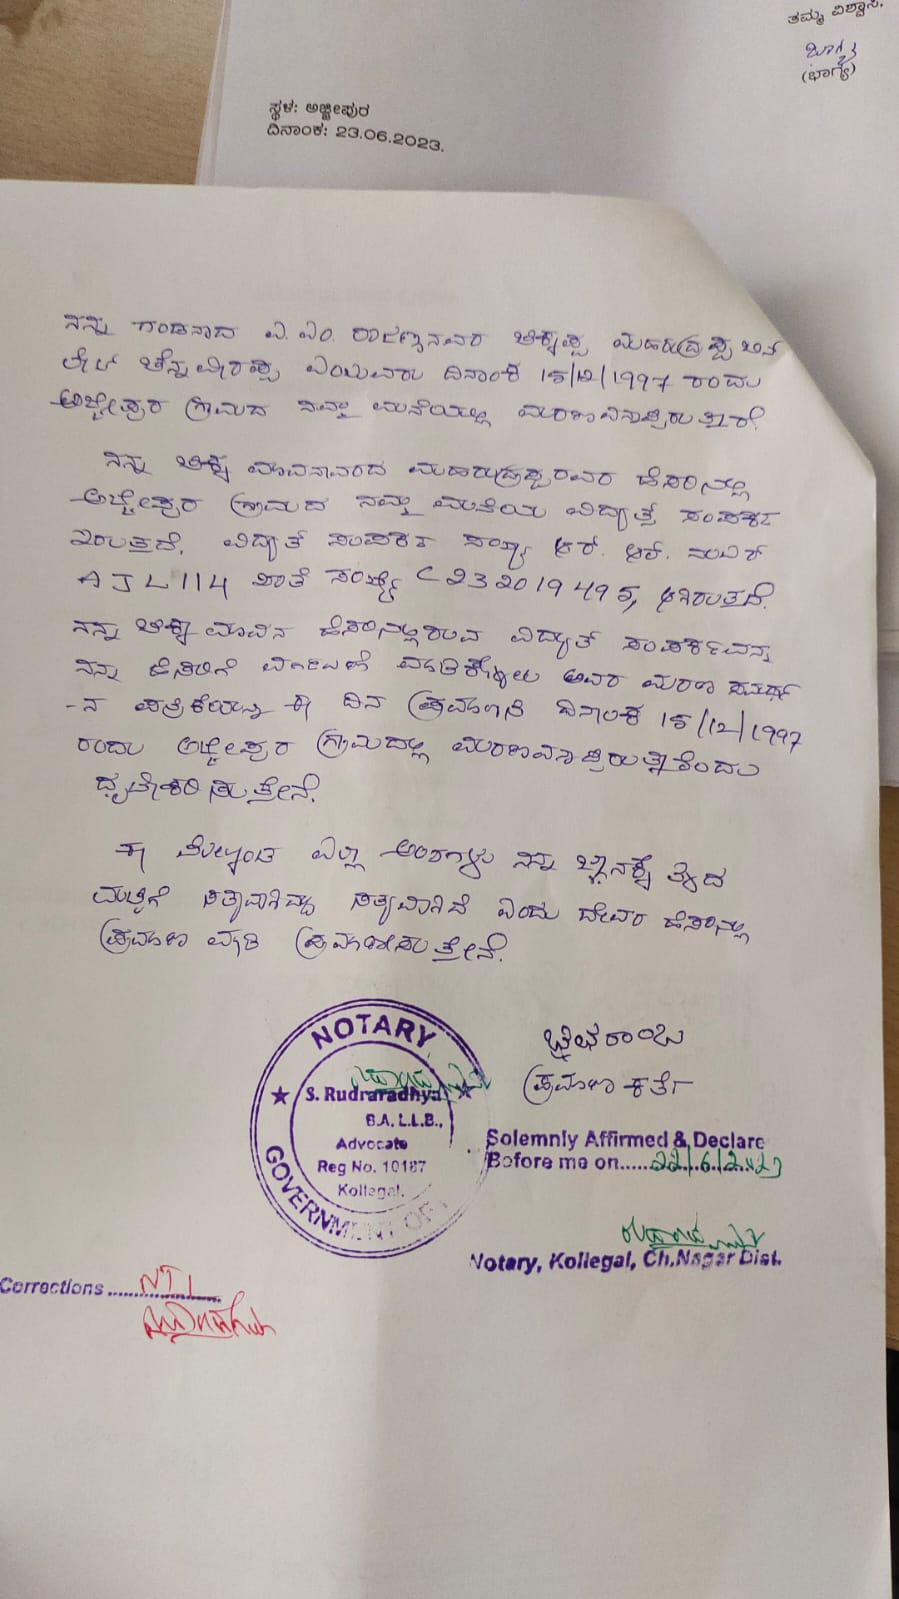 ತಮ್ಮ ವಿಶ್ವಾಸಿ,
ಭಾಗ್ಯ
(ಭಾಗ್ಯ)
ಸ್ಥಳ: ಅಜ್ಜೀಪುರ
ದಿನಾಂಕ: 23.06.2023.
ನನ್ನ ಗಂಡನಾದ ಎ.ಎಂ. ರಾಜಣ್ಣನವರ ಚಿಕ್ಕಪ್ಪ ಮಹರುದ್ರಪ್ಪ ಬಿನ್
ಲೇಟ್ ಚೆನ್ನವೀರಪ್ಪ ಎಂಬುವರು ದಿನಾಂಕ 15/12/1997 ರಂದು
ಅಜ್ಜೀಪುರ ಗ್ರಾಮದ ನಮ್ಮ ಮನೆಯಲ್ಲಿ ಮರಣವನ್ನಪ್ಪಿರುತ್ತಾರೆ.
ನನ್ನ ಚಿಕ್ಕ ಮಾವನವರದ ಮಹರುದ್ರಪ್ಪರವರ ಹೆಸರಿನಲ್ಲಿ
ಅಜ್ಜೀಪುರ ಗ್ರಾಮದ ನಮ್ಮ ಮನೆಯ ವಿದ್ಯುತ್ ಸಂಪರ್ಕ
ಇರುತ್ತದೆ. ವಿದ್ಯುತ್ ಸಂಪರ್ಕ ಸಂಖ್ಯೆ ಆರ್. ಆರ್. ನಂಬರ್
AJL114 ಖಾತೆ ಸಂಖ್ಯೆ 232019495, ಆಗಿರುತ್ತದೆ.
ನನ್ನ ಚಿಕ್ಕ ಮಾವನ ಹೆಸರಿನಲ್ಲಿರುವ ವಿದ್ಯುತ್ ಸಂಪರ್ಕವನ್ನು
ನನ್ನ ಹೆಸರಿಗೆ ವರ್ಗಾವಣೆ ಮಾಡಿಕೊಳ್ಳಲು ಅವರ ಮರಣ ಸಮರ್ಥ
-ನ ಪತ್ರಿಕೆಯನ್ನು ಈ ದಿನ ಪ್ರಮಾಣಿತ ದಿನಾಂಕ 15/12/1997
ರಂದು ಅಜ್ಜೀಪುರ ಗ್ರಾಮದಲ್ಲಿ ಮರಣವನ್ನಪ್ಪಿರುತ್ತಾರೆಂದು
ದೃಢೀಕರಿಸುತ್ತೇನೆ.
ಈ ಮೇಲ್ಕಂಡ ಎಲ್ಲಾ ಅಂಶಗಳು ನನ್ನ ಜ್ಞಾನಕ್ಕೆ ತಿಳಿದ
ಮಟ್ಟಿಗೆ ಸತ್ಯವಾಗಿದ್ದು ಸತ್ಯವಾಗಿದೆ ಎಂದು ದೇವರ ಹೆಸರಿನಲ್ಲಿ
ಪ್ರಮಾಣ ಮಾಡಿ ಪ್ರಮಾಣೀಸುತ್ತೇನೆ.
ಪ್ರಮಾಣ ಕರ್ತೆ
NOTARY
S. Rudraradhya
B.A. L.L.B.,
Advocate
Reg No. 10187
Kollegal.
GOVERNMENT OF
Solemnly Affirmed & Declare
Before me on......22/6/2023
Notary, Kollegal, Ch.Nagar Dist.
Corrections ........